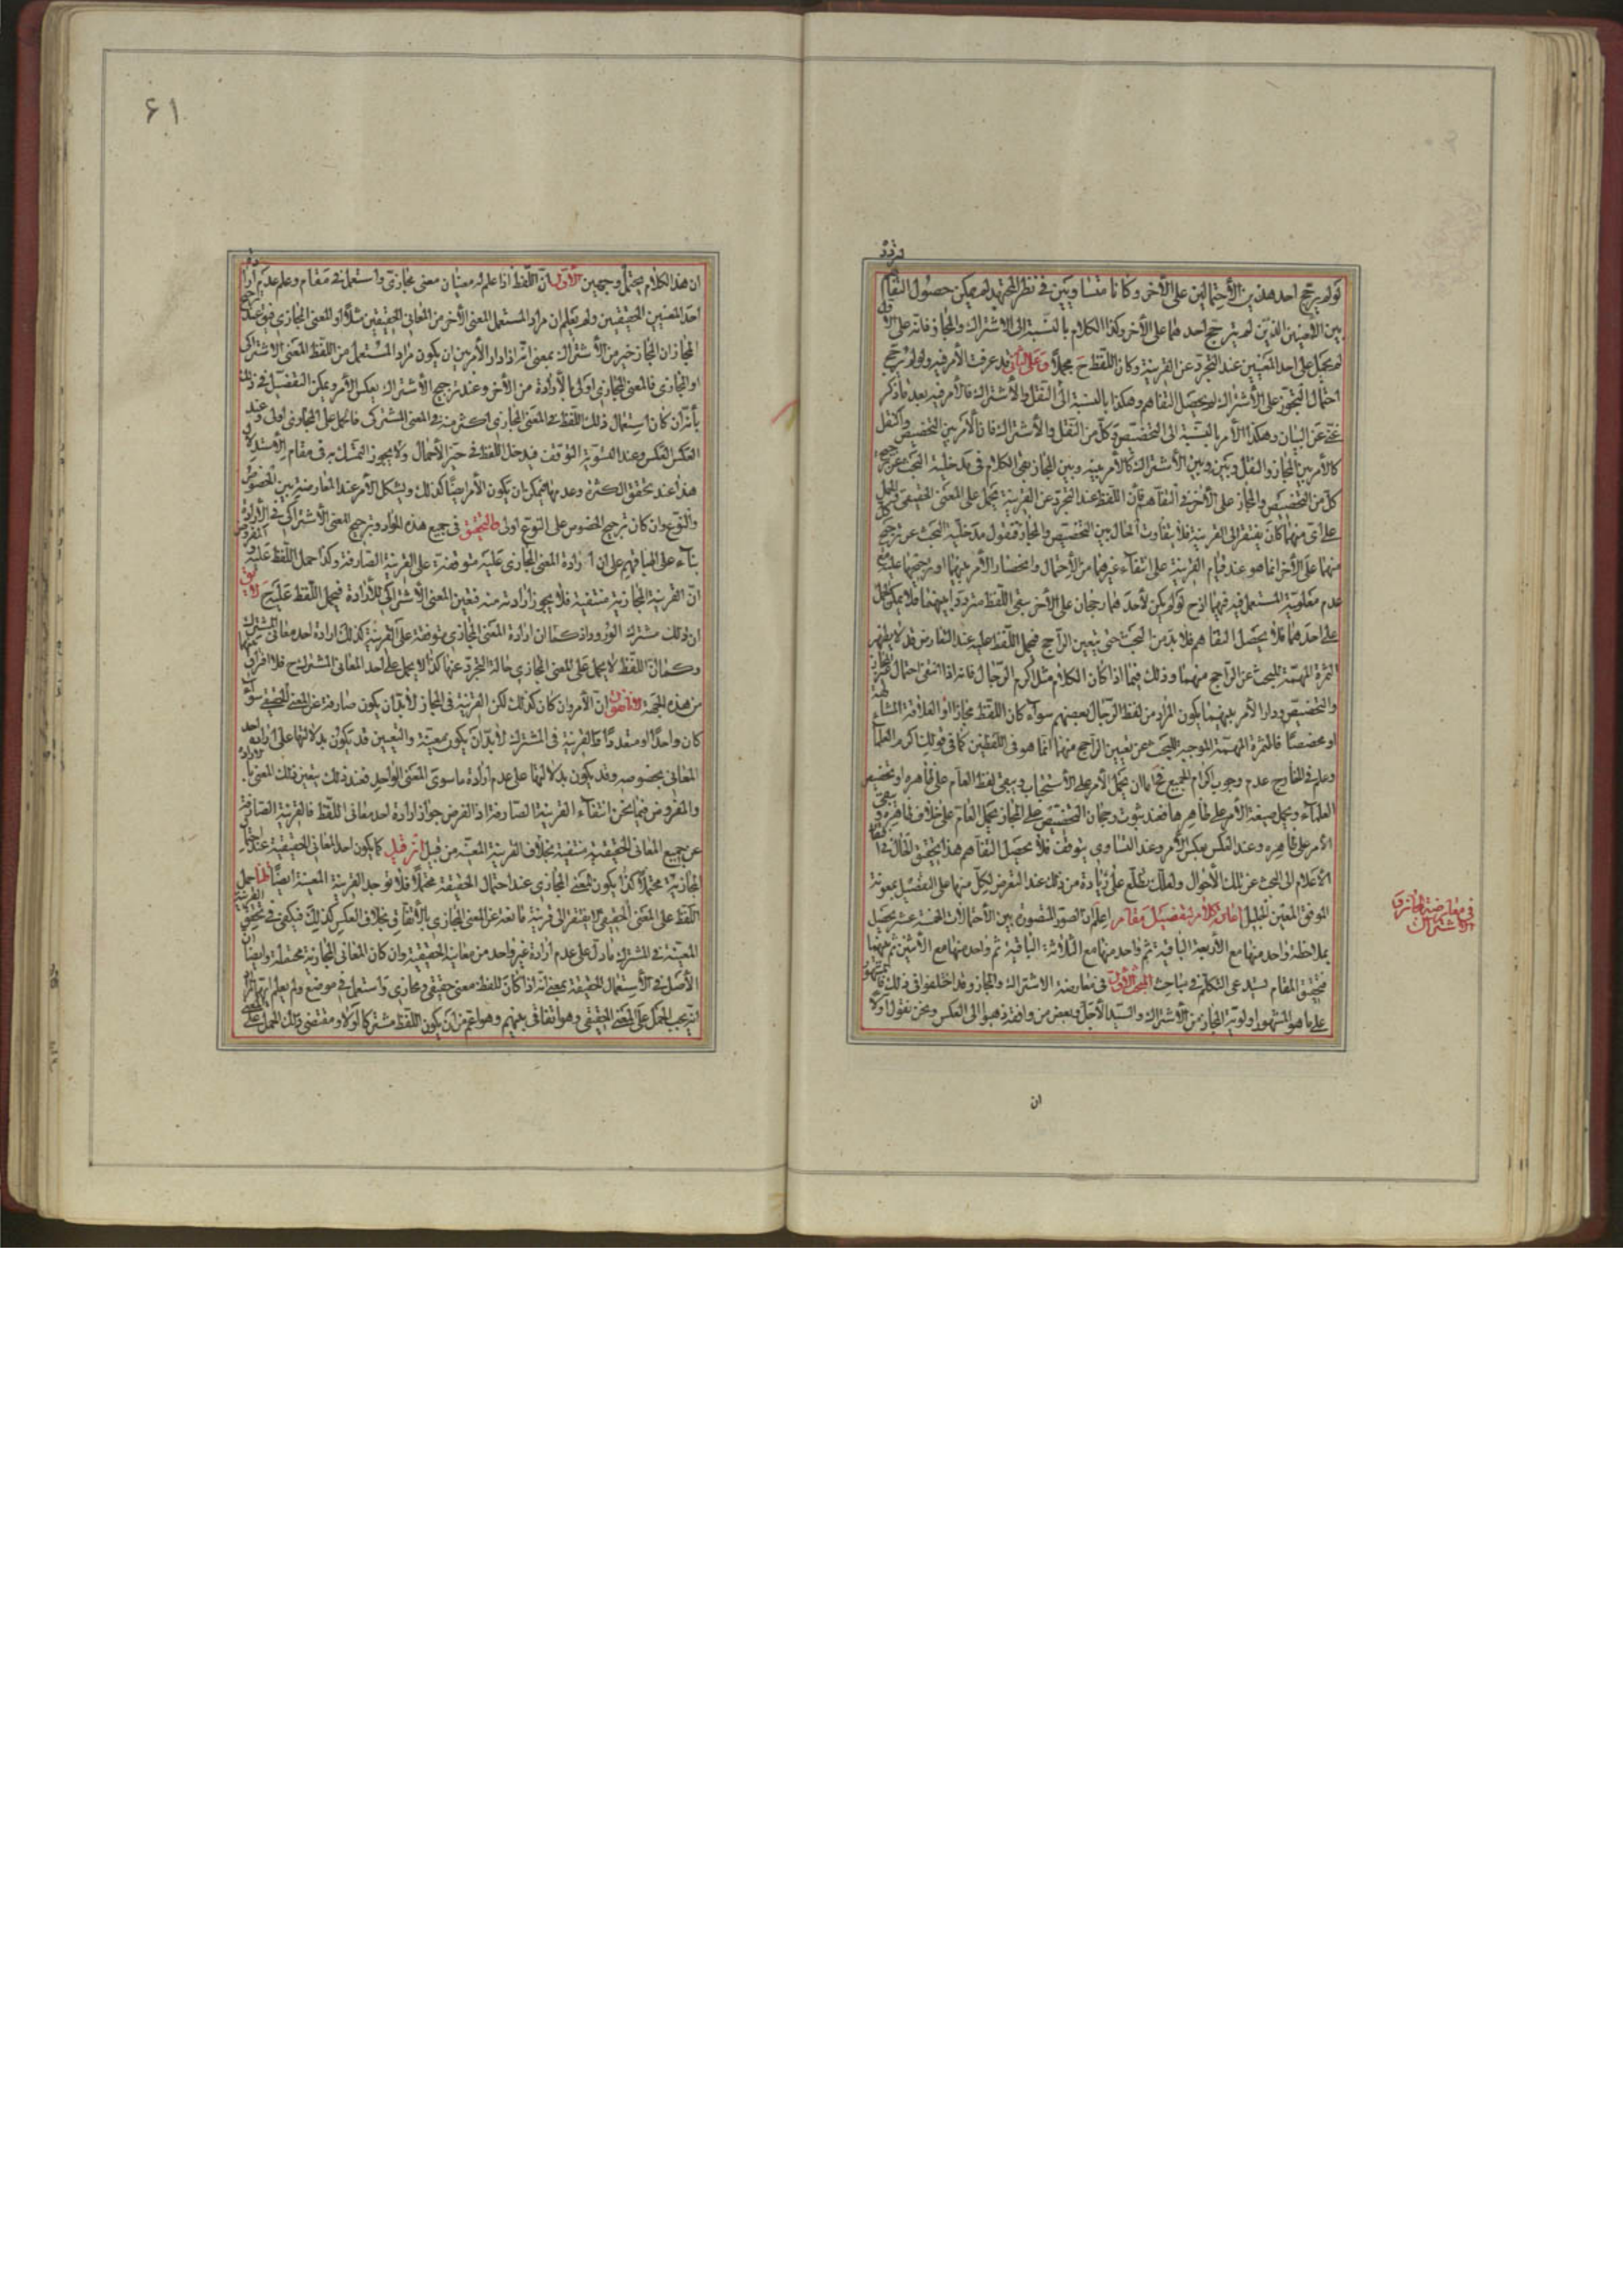 لو لم يرجح احد هذين الأحتمالين على الأخر وكانا متساويين في نظر المجتهد لم يمكن حصول التفاهم
بين الأمرين الذين لم يترجح احدهما على الأخر وكذا الكلام بالنسبة الى الاشتراك والمجاز فانه على الأول
لم يحمل على احد المعنيين عند التجرد عن القرينة وكان اللفظ ح مجملا وعلى الثاني قد عرفت الأمر فيه ولو لم يرجح
احتمال التجوز على الأشتراك لم يحصل التفاهم وهكذا بالنسبة الى النقل والأشتراك فالأمر فيه بعد ما ذكر
غني عن البيان وهكذا الأمر بالنسبة الى التخصيص وكل من النقل والأشتراك فان الأمر بين التخصيص والنقل
كالأمر بين المجاز والنقل وبين وبين الأشتراك كالأمر بينه وبين المجاز بقي الكلام في مدخلية البحث عن ترجيح
كل من التخصيص والمجاز على الأخر في التفاهم فان اللفظ عند التجرد عن القرينة يحمل على المعنى الحقيقي والحمل
على اي منهما كان يفتقر الى القرينة فلا يتفاوت الحال بين التخصيص والمجاز فنقول مدخلية البحث عن ترجيح كل
منهما على الأخر انما هو عند قيام القرينة على انتفاء غيرهما من الأحتمال وانحصار الأمر فيهما او ترجيحهما عليه مع
عدم معلومية المستعمل فيه فيهما اذ ح لو لم يكن لأحدهما رجحان على الأخر بقي اللفظ مترددا بينهما فلا يمكن الحمل
على احدهما فلا يحصل التفاهم فلا بد من البحث حتى يتعين الراجح فيحمل اللفظ عليه عند التعارض قد لا يظهر
الثمرة المهمة للبحث عن الراجح منهما وذلك فيما اذا كان الكلام مثل اكرم الرجال فانه اذا انتفى احتمال غير المجاز
والتخصيص ودار الأمر بينهما يكون المراد من لفظ الرجال بعضهم سواء كان اللفظ مجازا او العلاقة المشابهة
او مخصصا فالثمرة المهمة الموجبة للبحث عن تعيين الراجح منهما انما هو في اللفظين كما في قولك اكرم العلماء
وعلم في الخارج عدم وجوب اكرام الجميع فح اما ان يحمل الأمر على الأستحباب ويبقى لفظ العام على ظاهره او تخصيص
العلماء ويحمل صيغة الأمر على ظاهرها فعند ثبوت رجحان التخصيص على المجاز يحمل العام على خلاف ظاهره ويبقى
الأمر على ظاهره وعند العكس بعكس الأمر وعند التساوي يتوقف فلا يحصل التفاهم هذا تحقيق الحال في افتقار
الأعلام الى البحث عن تلك الأحوال ولعلك تطلع على زيادة من ذلك عند التعرض لكل منها على التفصيل بمعونة
الموفق المعين الجليل اعادة كلام بتفصيل مقام اعلم ان الصور المتصورة بين الأحتمالات الخمسة عشر يحصل
بملاحظة واحد منها مع الأربعة الباقية ثم واحد منها مع الثلاثة الباقية ثم واحد منها مع الأثنين ثم بينهما
فتحقيق المقام يستدعي التكلم في مباحث المبحث الأول في معارضة الاشتراك والمجاز وقد اختلفوا في ذلك فالمشهور
على ما هو المشهور اولوية المجاز من الأشتراك والسيد الأجل وبعض من وافقه ذهبوا الى العكس ونحن نقول اولا
في معارضة المجاز و
الاشتراك
ان
۶۱
ان هذا الكلام يحتمل وجهين الأول ان اللفظ اذا علم له معنيان معنى مجازي واستعمل في مقام وعلم عدم ارادة
احد المعنيين الحقيقيين ولم يعلم ان مراد المستعمل المعنى الأخر من المعاني الحقيقيين مثلا او المعنى المجازي فيق عند
المجاز ان المجاز خير من الأشتراك بمعنى انه اذا دار الأمر بين ان يكون مراد المستعمل من اللفظ المعنى الاشتراكي
او المجازي فالمعنى المجازي اولى بالأرادة من الأخر وعند ترجيح الأشتراك بعكس الأمر ويمكن التفصيل في ذلك
بأنه ان كان استعمال ذلك اللفظ في المعنى المجازي اكثر منه في المعنى المشتركي فالحمل على المجازي اولى وعند
العكس العكس وعند التسوية التوقف فيدخل اللفظ في حيز الأجمال ولا يجوز التمسك به في مقام الأستدلال
هذا عند تحقق الكثرة وعدمها فيمكن ان يكون الأمر ايضا كذلك ويشكل الأمر عند المعارضة بين الخصوص
والنوع وان كان ترجيح الخصوص على النوع اولى فالتحقيق في جميع هذه الموارد ترجيح المعنى الأشتراكي في الأرادة
بناء على اطباقهم على ان ارادة المعنى المجازي عليه متوقفة على القرينة الصارفة وكذا حمل اللفظ عليه والمفروض
ان القرينة المجازية منتفية فلا يجوز ارادته منه فتعين المعنى الأشتراكي للأرادة فيحمل اللفظ عليه ح لا يق
ان ذلك مشترك الورود اذ كما ان ارادة المعنى المجازي متوقفة على القرينة كذلك ارادة احد معاني المشترك
وكما ان اللفظ لا يحمل على المعنى المجازي حالة التجرد عنها كذا لا يحمل على احد المعاني المشترك ح فلا افتراق بينهما
من هذه الجهة لانا نقول ان الأمر وان كان كذلك لكن القرينة في المجاز لا بد ان يكون صارفة عن المعنى الحقيقي سواء
كان واحدا او متعددا والقرينة في المشترك لا بد ان يكون معينة والتعيين قد يكون بدلالتها على ارادة احد
المعاني بخصوصه وقد يكون بدلالتها على عدم ارادة ما سوى المعنى الواحد فعند ذلك يتعين ذلك المعنى بالارادة
والمفروض فيما نحن انتفاء القرينة الصارفة اذ الفرض جواز ارادة احد معاني اللفظ فالقرينة الصارفة
عن جميع المعاني الحقيقية منتفية بخلاف القرينة المعينة من قبل ان قيل كما يكون احد المعاني الحقيقية عند احتمال
المجازية محتملا كذا يكون المعنى المجازي عند احتمال الحقيقة محتملا فلا توجد القرينة المعينة ايضا قلنا حمل
اللفظ على المعنى الحقيقي لا يفتقر الى قرينة مانعة عن المعنى المجازي بالأتفاق بخلاف العكس كذلك فيكفي في تحقيق القرينة
المعينة في المشترك ما دل على عدم ارادة غير واحد من معانيه الحقيقية وان كان المعاني المجازية محتملة وايضا ان
الأصل في الأستعمال الحقيقة بمعنى انه اذا كان للفظ معنى حقيقي ومجازي واستعمل في موضع ولم يعلم ايهما المراد
انه يجب الحمل على المعنى الحقيقي وهو اتفاقي بينهم وهو اعم من ان يكون اللفظ مشتركا او لا ومقتضى ذلك الحمل على المعنى